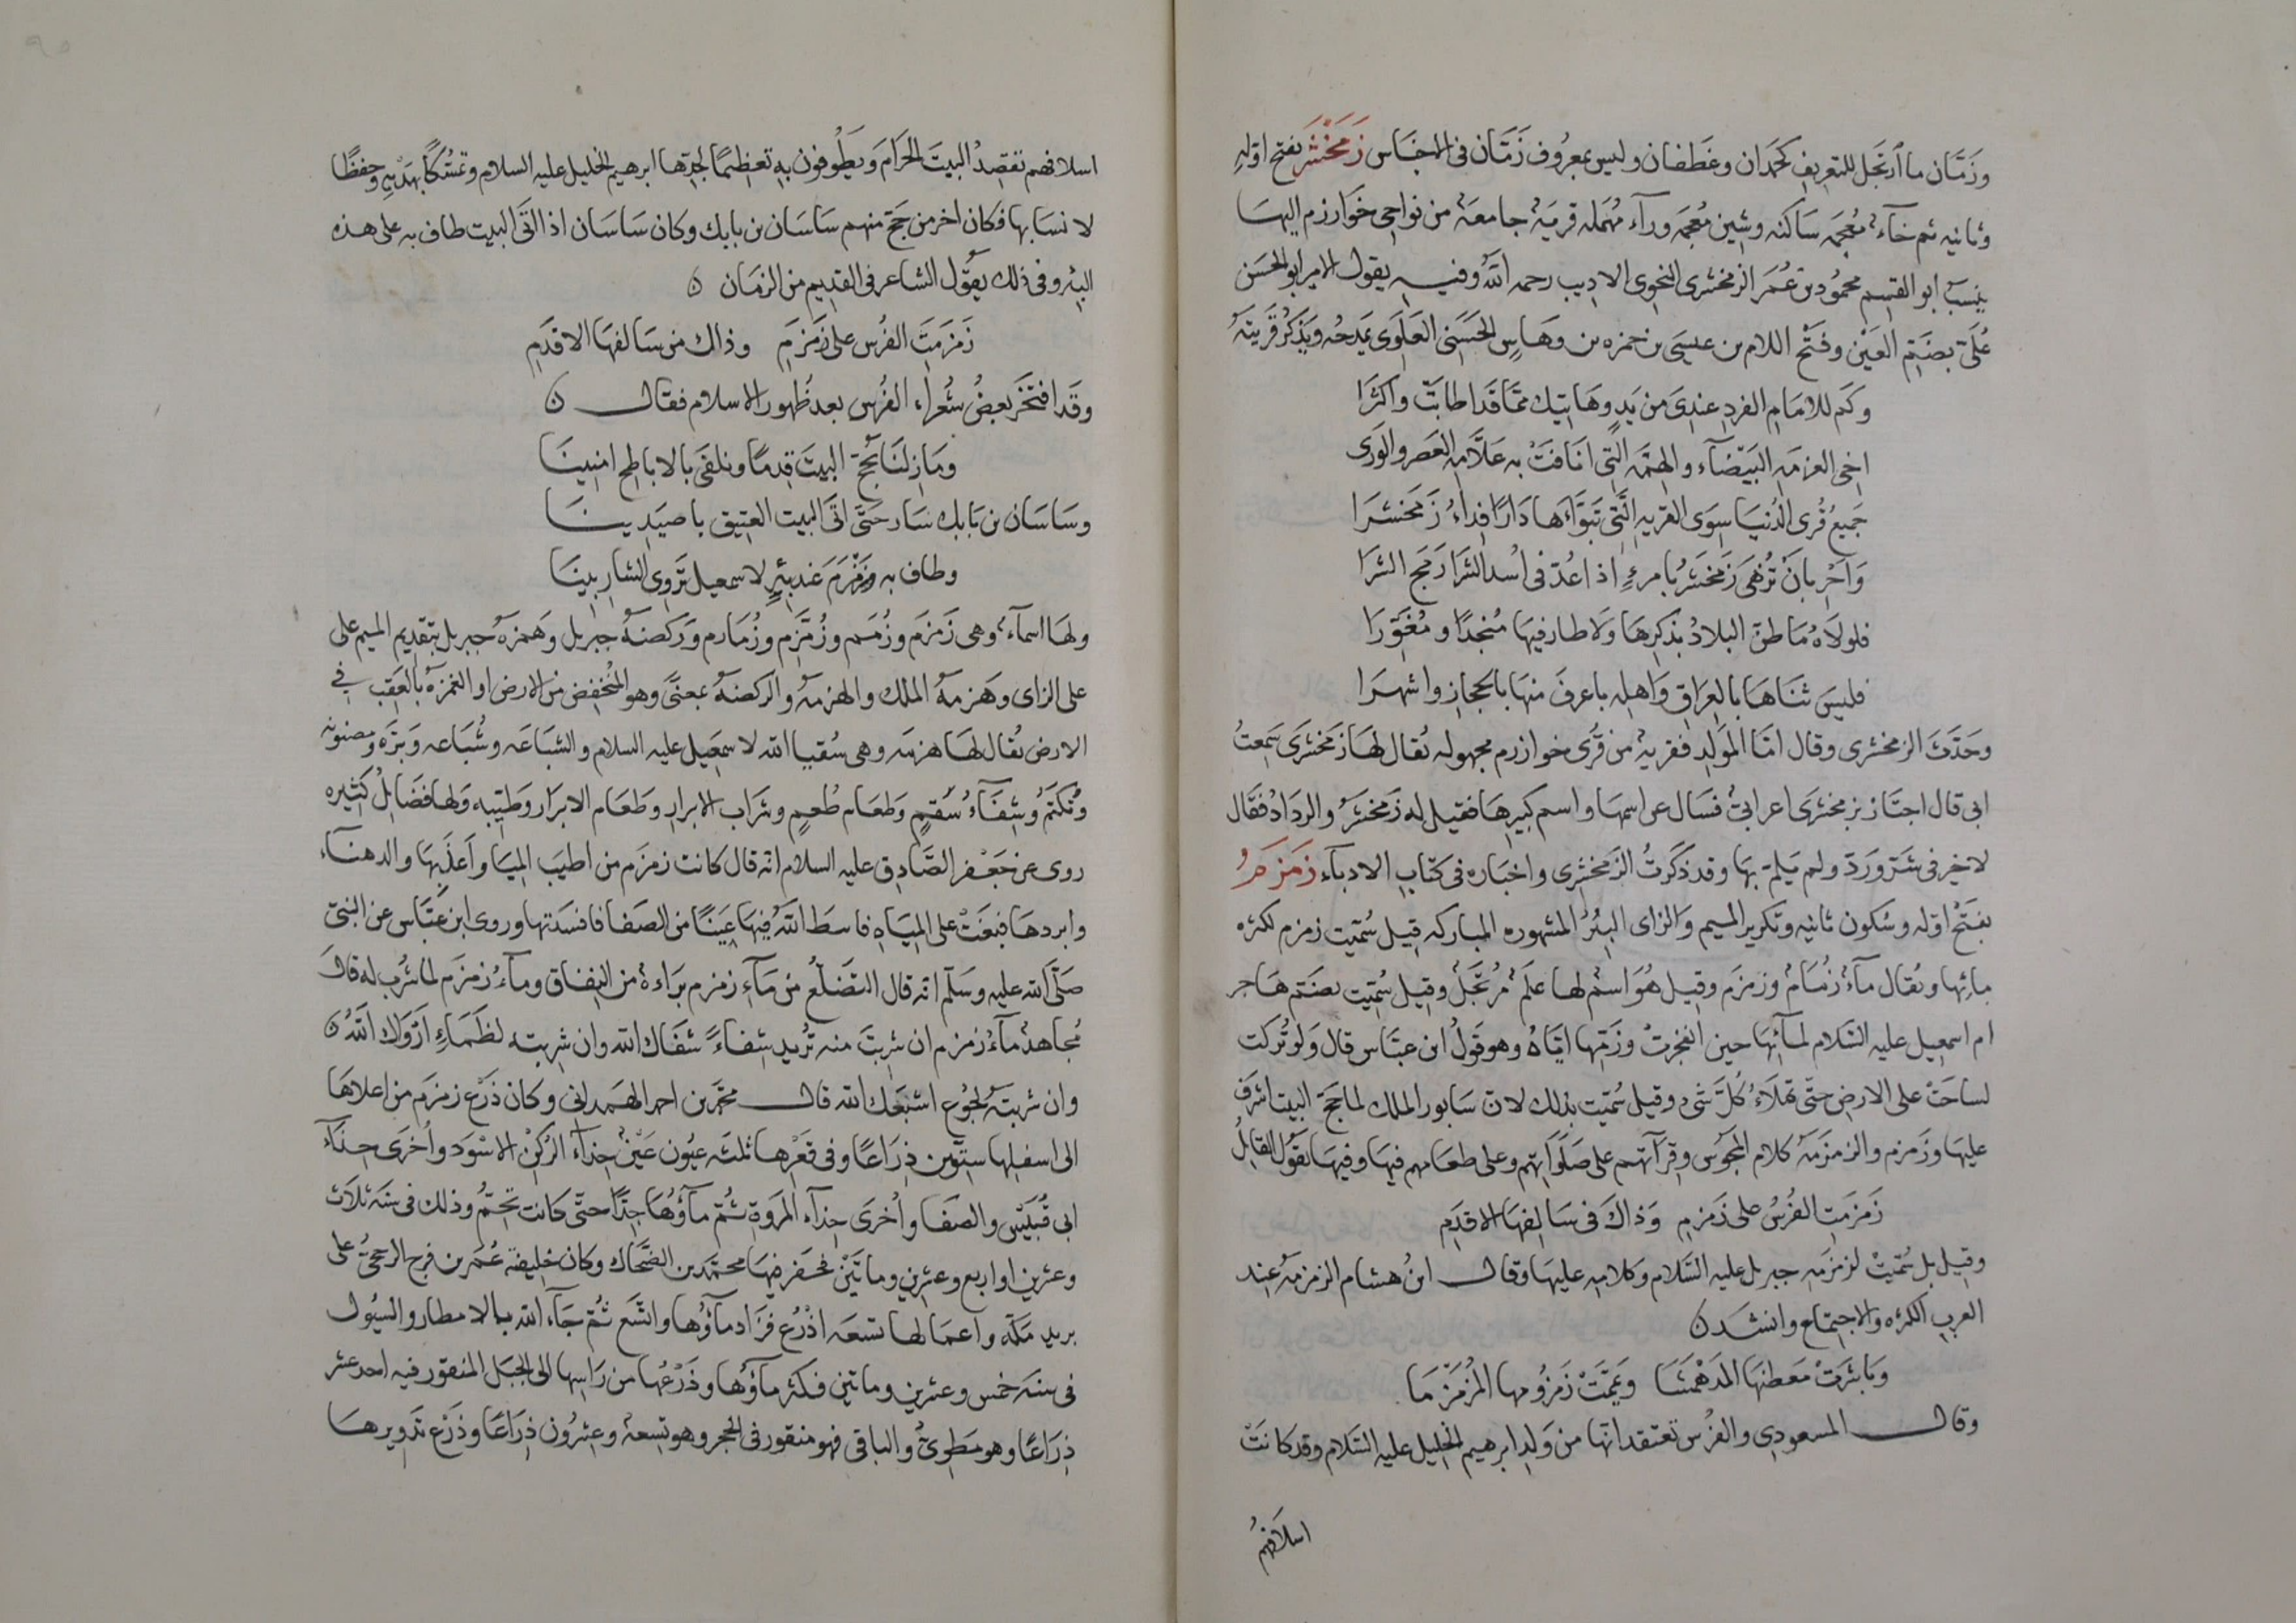 وزَمَّان ما ارتجل للتعريف كحمدان وغطفان وليس بمعروف زَمَّان في الاجناس زَمَخْشَر بفتح اوّله
وثانيه ثم خآء معجمه ساكنه وشين معجمه ورآء مهمله قريةٌ جامعةٌ من نواحي خوارزم اليها
ينسب ابو القسم محمود بن عُمَر الزمخشرى النحوى الاديب رحمه الله وفيه يقول الامير ابو الحسن
عُلَىّ بضم العين وفتح اللام بن عيسى بن حمزه بن وهاس الحسَنى العلوى يمدحه ويذكر قريته
وكم للامام الفرد عندى من يدٍ وهاتيك ممّا قد اطابت واكثرا
اخى العزمه البيضآء والهمّه التى انافت به علّامه العصر والورى
جميعُ قرى الدنيا سِوَى القريه الَّتى تبوَّاءها دارًا فداءُ زمخشرا
وَاَحْرِ بان تُزهى زمخشر بامرءٍ اذا عُدّ فى اُسد الشرا زمخ الشرا
فلولاه ما طنّ البلاد بذكرها ولا طار فيها مُنجدًا ومُغوّرا
فليس ثناها بالعراق واهله باعرفَ منها بالحجاز واشهرا
وحَدّث الزمخشرى وقال امّا المولد فقريةٌ من قرى خوارزم مجهوله تقال لها زمخشرى سَمعتُ
ابى قال اجتاز بزمخشرى اعرابىٌّ فسال عن اسمها واسم كبيرها فقيل له زمخشر والرداد فقال
لا خير فى شرّ وردّ ولم يلمّ بها وقد ذكرتُ الزمخشرى واخباره فى كتاب الادبآء زمزمُ
بفتح اوّله وسكون ثانيه وتكرير الميم والزاى البئر المشهوره المباركه قيل سُمّيت زمزم لكثره
مآئها ويُقال مآءٌ زُمَامٌ وزمزم وقيل هو اسمٌ لها علَمٌ مُرتَجلٌ وقيل سُمّيت بضمّ هاجر
ام اسمعيل عليه السّلام لمآئها حين انفجرت وزمّها ايّاه وهو قولُ ابن عبّاس قال ولو تُركت
لساحَت على الارض حتّى تملاءَ كُلَّ شىء وقيل سُمّيت بذلك لانّ سابور الملك لما حجّ البيت اشرف
عليها وزمزم والزمزمه كلام المجوس وقرآتهم على صلواتهم وعلى طعامهم فيها وفيها يقول القايل
زمزمتِ الفُرسُ على زمزمِ وَذاكَ فى سالفها الاقدمِ
وقيل بل سُمّيتْ لزمزمه جبريل عليه السّلام وكلامه عليها وقال ابنُ هشام الزمزمه عند
العرب الكثره والاجتماع وانشد
وباشرت معطنها المدهثما ويمّمت زمزومها المزمزما
وقال المسعودى والفُرس تعتقد انّها من ولد ابرهيم الخليل عليه السّلام وقد كانت
اسلافهم
اسلافهم تقصد البيت الحرام ويطوفون به تعظيمًا لجدّها ابرهيم الخليل عليه السلام وتمسُّكًا بهديه وحفظًا
لانسابها فكان اخر من حَجّ منهم ساسان بن بابك وكان ساسان اذا اتى البيت طاف به على هذه
البئر وفى ذلك يقول الشاعر فى القديم من الزمان
زمزمتَ الفُرس على زمزمِ وذاك من سالفها الاقدمِ
وقد افتخر بعضُ شُعرآء الفُرس بعد ظهور الاسلام فقال
وما زلنا نحجّ البيت قِدمًا ونلقى بالاباطح امنينا
وساسان بن بابك سار حَتّى اتى البيت العتيق باصيدينا
وطاف به وزمزم عند بئرٍ لاسمعيل تروى الشاربينا
ولها اسمآء وهى زمزم وزُمَم وزُمّزم وزُمازم وركضهُ جبريل وهمزهُ جبريل بتقديم الميم على
على الزاى وهزمهُ الملك والهزمه والركضهُ بمعنًى وهو المنخفض من الارض او الغمزه بالعقب فى
الارض يُقال لها هزمه وهى سُقيا الله لاسمعيل عليه السلام والشباعه وشُباعه وبرّه ومضنونه
وتُكتم وشفآءُ سُقمٍ وطعام طُعمٍ وشراب الابرار وطعام الابرار وطيّبه ولها فضايل كثيره
روى عن جعفر الصّادق عليه السلام انّه قال كانت زمزم من اطيب المياه واعذبها والذّها
وابردها فبغتْ على المياه فاسط الله فيها عَيْنًا من الصفا فافسدتها وروى ابن عبّاس عن النبىّ
صلّى الله عليه وسلّم انّه قال التضلّعُ من مآء زمزم براءة من النفاق ومآءُ زمزم لما شُرب له قال
مُجاهد مآءُ زمزم ان شربت منه تريد شفاءً شفاك الله وان شربته لظمآءٍ ارواك اللهُ
وان شربته لجوع اشبعك الله قال محمّد بن احمد الهمدانى وكان ذَرْع زمزم من اعلاها
الى اسفلها ستّين ذراعًا وفى قعرها ثلثه عيون عينٌ حذآء الركن الاسود واُخرى حذآء
ابى قبيس والصفا واُخرى حذآء المروة ثُمّ قلّ مآؤها جدًّا حتّى كانت تجمّ وذلك فى سنة ثلاث
وعشرين او اربع وعشرين وماتين فحفر فيها محمّد بن الضحّاك وكان خليفة عُمر بن فرج الرخجىّ على
بريد مكّة واعمالها تسعه اذرُع فزاد مآؤها واتّسع ثُمّ جآء الله بالامطار والسيول
فى سنة خمس وعشرين وماتين فكثر مآؤها وذَرْعُها من راسها الى الجبل المنقور فيه احد عشر
ذراعًا وهو مطوىٌّ والباقى فهو منقور فى الحجر وهو تسعةٌ وعشرون ذراعًا وذَرْع تدويرها